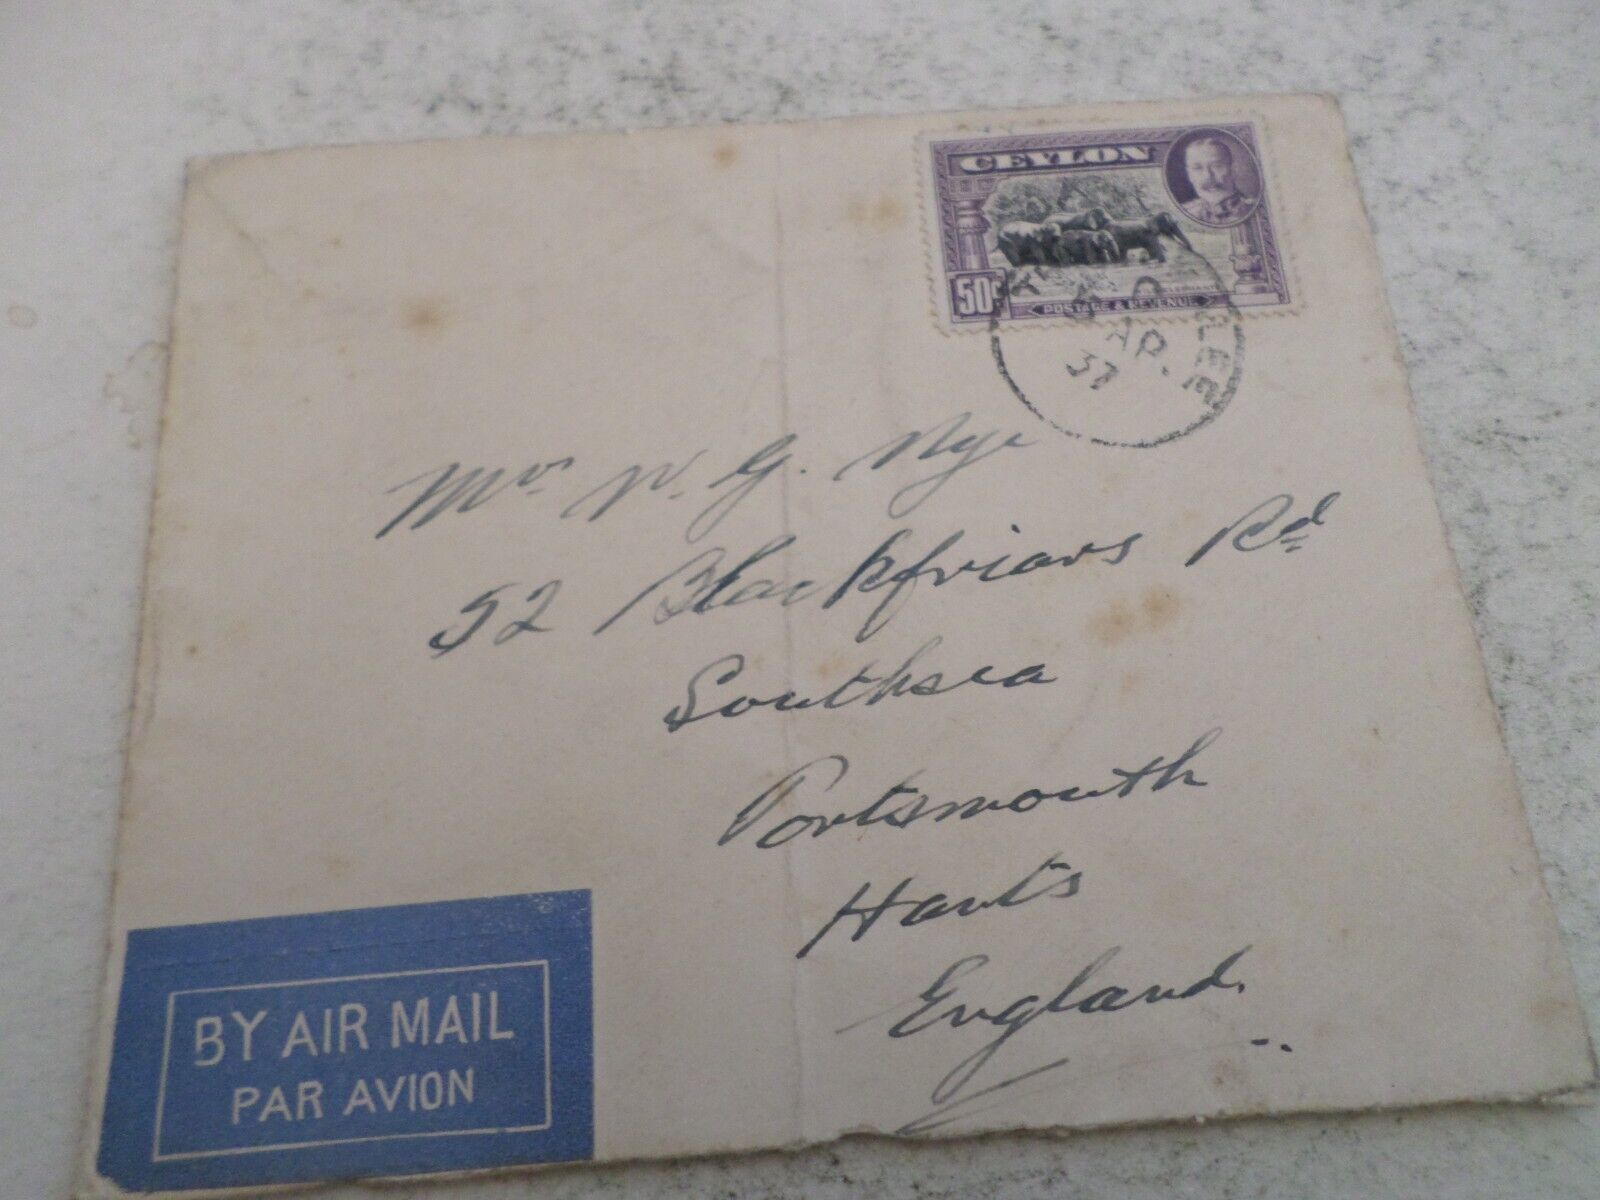 CEYLON
50c
POSTAGE & REVENUE
AP.
37
Mrs W. G. Nye
52 Blackfriars Rd
Southsea
Portsmouth
Hants
England.
BY AIR MAIL
PAR AVION